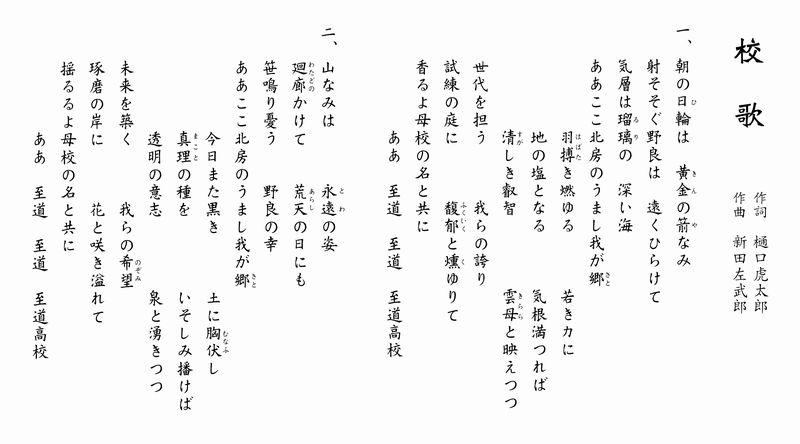 校歌
作詞 樋口虎太郎
作曲 新田左武郎
一、朝の日輪は 黄金の箭なみ
射そそぐ野良は 遠くひらけて
気層は瑠璃の 深い海
ああここ北房のうまし我が郷
羽搏き燃ゆる 若き力に
地の塩となる 気根満つれば
清しき叡智 雲母と映えつつ
世代を担う 我らの誇り
試練の庭に 馥郁と燻ゆりて
香るよ母校の名と共に
ああ 至道 至道 至道高校
二、山なみは 永遠の姿
廻廊かけて 荒天の日にも
笹鳴り憂う 野良の幸
ああここ北房のうまし我が郷
今日また黒き 土に胸伏し
真理の種を いそしみ播けば
透明の意志 泉と湧きつつ
未来を築く 我らの希望
琢磨の岸に 花と咲き溢れて
揺るるよ母校の名と共に
ああ 至道 至道 至道高校